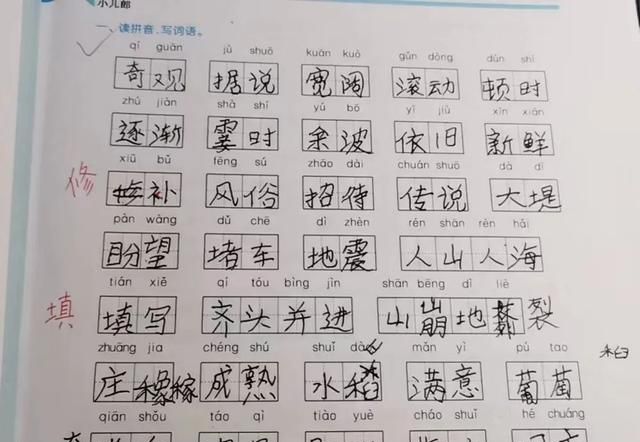 小儿郎
一、读拼音，写词语。
qí guān jù shuō kuān kuò gǔn dòng dùn shí
奇观 据说 宽阔 滚动 顿时
zhú jiàn shà shí yú bō yī jiù xīn xiān
逐渐 霎时 余波 依旧 新鲜
xiū bǔ fēng sú zhāo dài chuán shuō dà dī
修 修补 风俗 招待 传说 大堤
pàn wàng dǔ chē dì zhèn rén shān rén hǎi
盼望 堵车 地震 人山人海
tián xiě qí tóu bìng jìn shān bēng dì liè
填 填写 齐头并进 山崩地裂
zhuāng jia chéng shú shuǐ dào mǎn yì pú tao
稻
庄稼 成熟 水稻 满意 葡萄
qiān shǒu tāo qì yuè cháo shuǐ hé chuáng